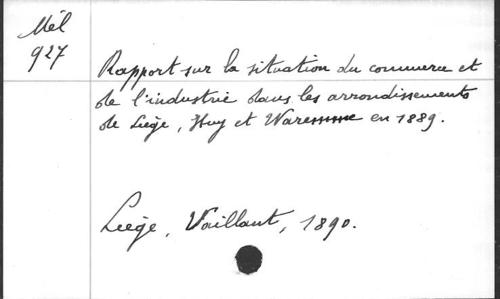 Mél
927
Rapport sur la situation du commerce et
de l'industrie dans les arrondissements
de Liège, Huy et Waremme en 1889.
Liège, Vaillant, 1890.